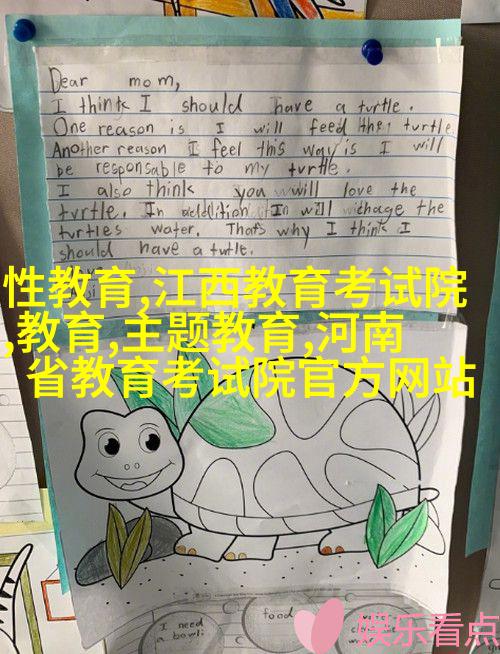 Dear mom,
I think I should have a turtle.
One reason is I will feed the turtle.
Another reason I feel this way is I will
be responsable to my turtle.
I also think you will love the
turtle. In addition I will chage the
turtles water. That's why I think I
should have a turtle.
性教育,江西教育考试院
,教育,主题教育,河南
省教育考试院官方网站
I need
a bowl
food
娱乐看点